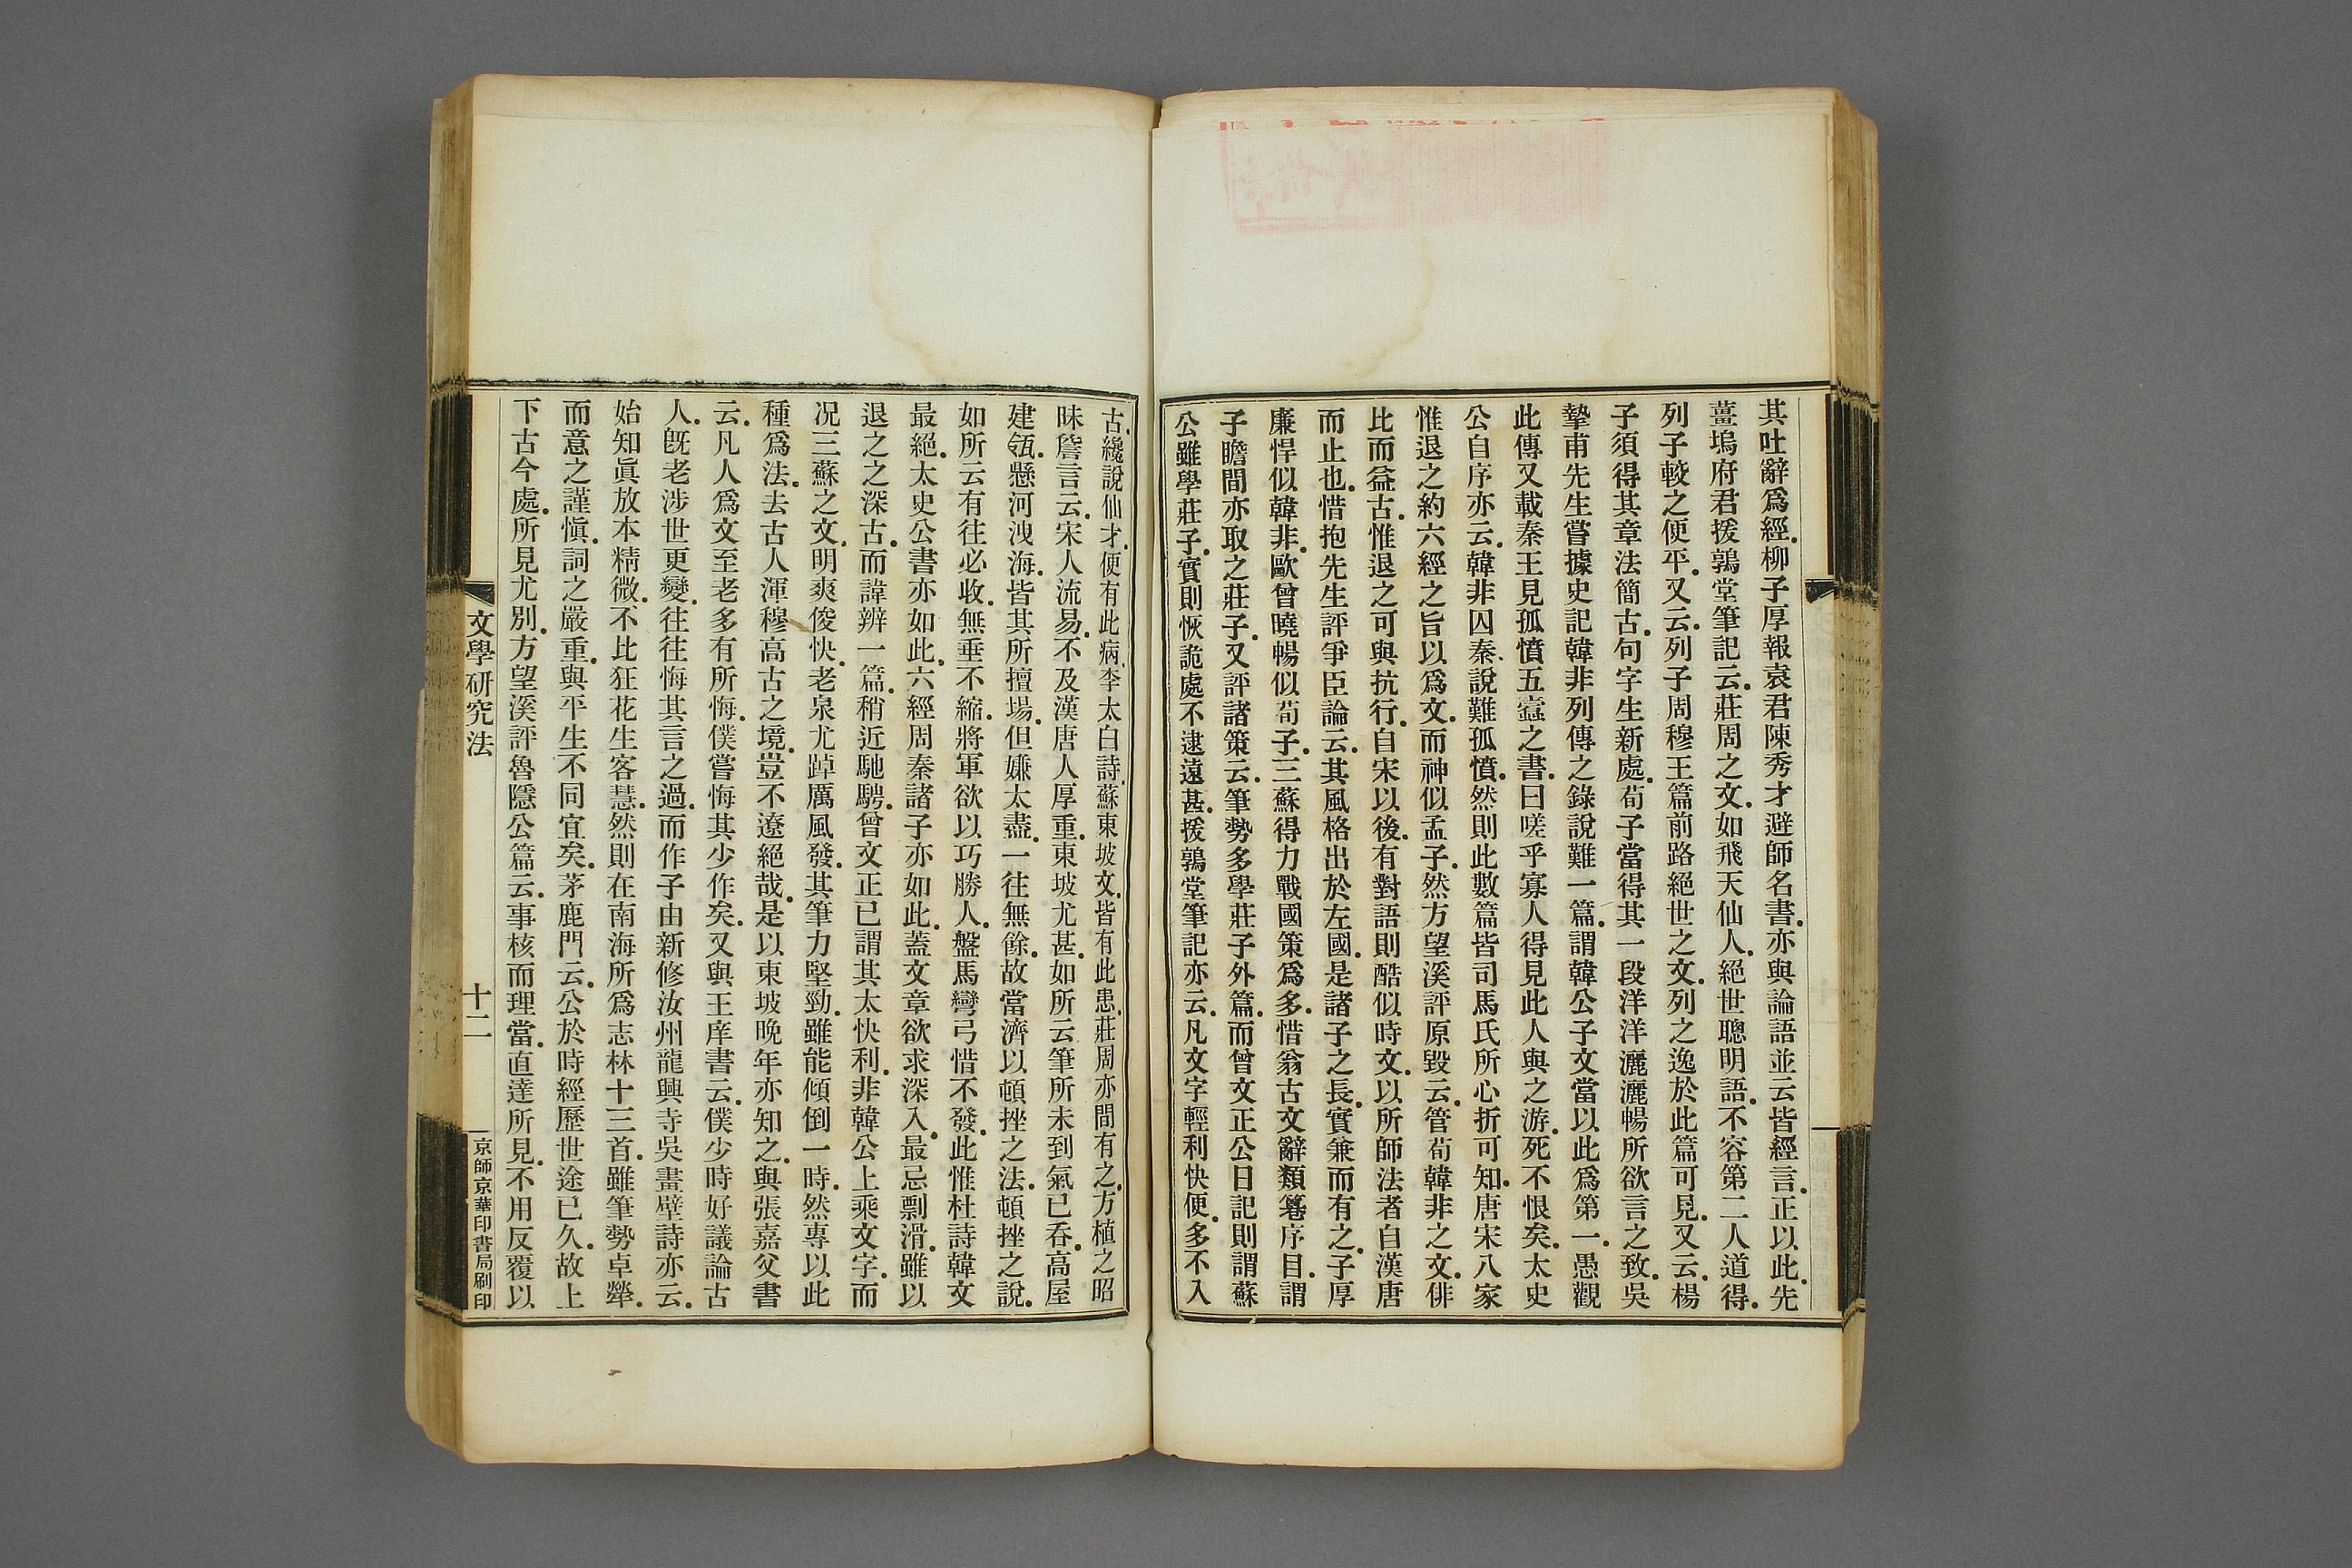 其吐辭爲經.柳子厚報袁君陳秀才避師名書.亦與論語並云皆經言.正以此.先
薑塢府君援鶉堂筆記云.莊周之文.如飛天仙人.絕世聰明語.不容第二人道得.
列子較之便平.又云.列子周穆王篇前路絕世之文.列之逸於此篇可見.又云.楊
子須得其章法簡古.句字生新處.荀子當得其一段洋洋灑灑暢所欲言之致.吳
摯甫先生嘗據史記韓非列傳之錄說難一篇.謂韓公子文當以此爲第一.愚觀
此傳又載秦王見孤憤五蠹之書.曰嗟乎寡人得見此人與之游.死不恨矣.太史
公自序亦云.韓非囚秦.說難孤憤.然則此數篇皆司馬氏所心折可知.唐宋八家
惟退之約六經之旨以爲文.而神似孟子.然方望溪評原毀云.管荀韓非之文.俳
比而益古.惟退之可與抗行.自宋以後.有對語則酷似時文.以所師法者自漢唐
而止也.惜抱先生評爭臣論云.其風格出於左國.是諸子之長.實兼而有之.子厚
廉悍似韓非.歐曾曉暢似荀子.三蘇得力戰國策爲多.惜翁古文辭類篹序目.謂
子瞻間亦取之莊子.又評諸策云.筆勢多學莊子外篇.而曾文正公日記則謂蘇
公雖學莊子.實則恢詭處不逮遠甚.援鶉堂筆記亦云.凡文字輕利快便.多不入
古.纔說仙才.便有此病.李太白詩.蘇東坡文.皆有此患.莊周亦間有之.方植之昭
昧詹言云.宋人流易.不及漢唐人厚重.東坡尤甚.如所云筆所未到氣已吞.高屋
建瓴.懸河洩海.皆其所擅場.但嫌太盡.一往無餘.故當濟以頓挫之法.頓挫之說.
如所云有往必收.無垂不縮.將軍欲以巧勝人.盤馬彎弓惜不發.此惟杜詩韓文
最絕.太史公書亦如此.六經周秦諸子亦如此.蓋文章欲求深入.最忌剽滑.雖以
退之之深古.而諱辨一篇.稍近馳騁.曾文正已謂其太快利.非韓公上乘文字.而
况三蘇之文.明爽俊快.老泉尤踔厲風發.其筆力堅勁.雖能傾倒一時.然專以此
種爲法.去古人渾穆高古之境.豈不遼絕哉.是以東坡晚年亦知之.與張嘉父書
云.凡人爲文至老多有所悔.僕嘗悔其少作矣.又與王庠書云.僕少時好議論古
人.旣老涉世更變.往往悔其言之過.而作子由新修汝州龍興寺吳畫壁詩亦云.
始知眞放本精微.不比狂花生客慧.然則在南海所爲志林十三首.雖筆勢卓犖.
而意之謹愼.詞之嚴重.與平生不同宜矣.茅鹿門云.公於時經歷世途已久.故上
下古今處.所見尤別.方望溪評魯隱公篇云.事核而理當.直達所見.不用反覆以
文學研究法
十二
京師京華印書局刷印